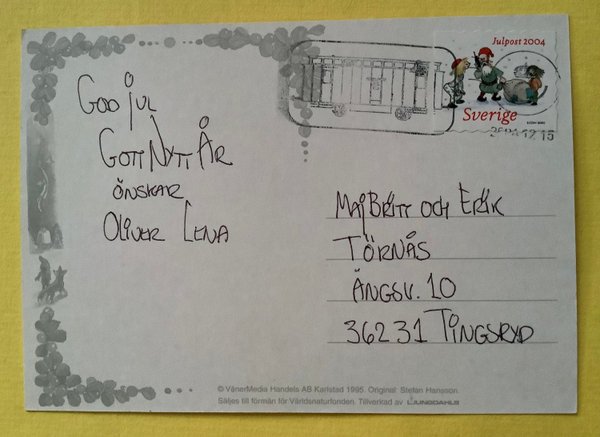 Julpost 2004
Sverige
2004 12 15
GOD JUL
GOTT NYTT ÅR
ÖNSKAR
OLIVER LENA
MAJBRITT OCH ERIK
TÖRNÅS
ÄNGSV. 10
36231 TINGSRYD
© VänerMedia Handels AB Karlstad 1995. Original: Stefan Hansson.
Säljes till förmån för Världsnaturfonden. Tillverkad av LJUNGDAHLS